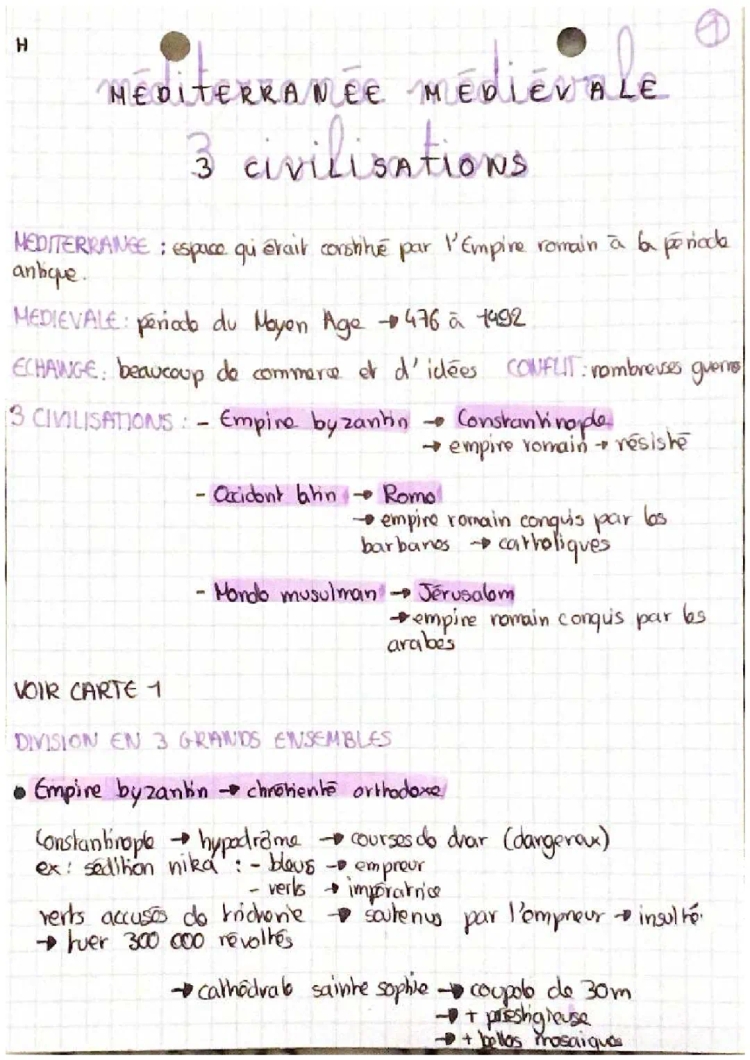 H
1
MÉDITERRANÉE MÉDIÉVALE
3 CIVILISATIONS
MEDITERRANEE : espace qui était constitué par l'Empire romain à la période
antique.
MEDIEVALE : période du Moyen Age → 476 à 1492
ECHANGE : beaucoup de commerce et d'idées CONFLIT : nombreuses guerres
3 CIVILISATIONS : - Empire byzantin → Constantinople
→ empire romain → résisté
- Occident latin → Rome
→ empire romain conquis par les
barbares → catholiques
- Monde musulman → Jérusalem
→ empire romain conquis par les
arabes
VOIR CARTE 1
DIVISION EN 3 GRANDS ENSEMBLES
• Empire byzantin → chrétienté orthodoxe
Constantinople → hypodrôme → courses de char (dangereux)
ex : sédition nika : - bleus → empreur
- verts → impératrice
verts accusés de tricherie → soutenus par l'empreur → insulté.
→ tuer 300 000 révoltés
→ cathédrale sainte sophie → coupole de 30m
→ + prestigieuse
→ + belles mosaïques